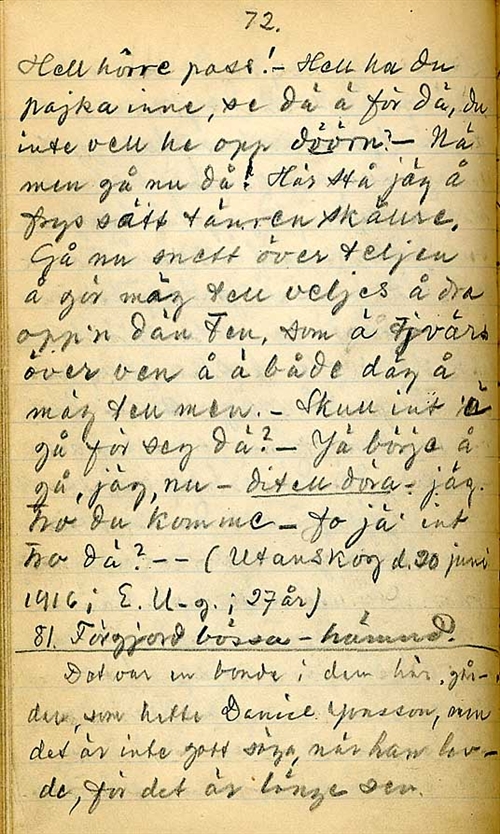 72.
Hell hôrre pass! - Hell ha du
pajka inne, se dä ä för dä, du
inte vell he opp döörn? - Nä
men gå nu då! Här stå jäg å
frys sätt tänren skälure.
Gå nu snett över teljen
å gör mäg tell veljes å dra
opp'n dän Ten, som ä tjvärs
över ven å ä både däg å
mäg tell men. - Skull int ä
gå för seg dä? - Jä börje å
gå, jäg, nu - ditell döra - jäg
tro du komme - fo jä int
tro dä? -- (Utanskog d. 30 juni
1916; E. U-g.; 27 år)
81. Förgjord bössa - hämnd.
Dat var en bonde i dem här går-
dar, som hette Daniel Jonsson, men
det är inte gott säga, när han lev-
de, för det är länge sen.